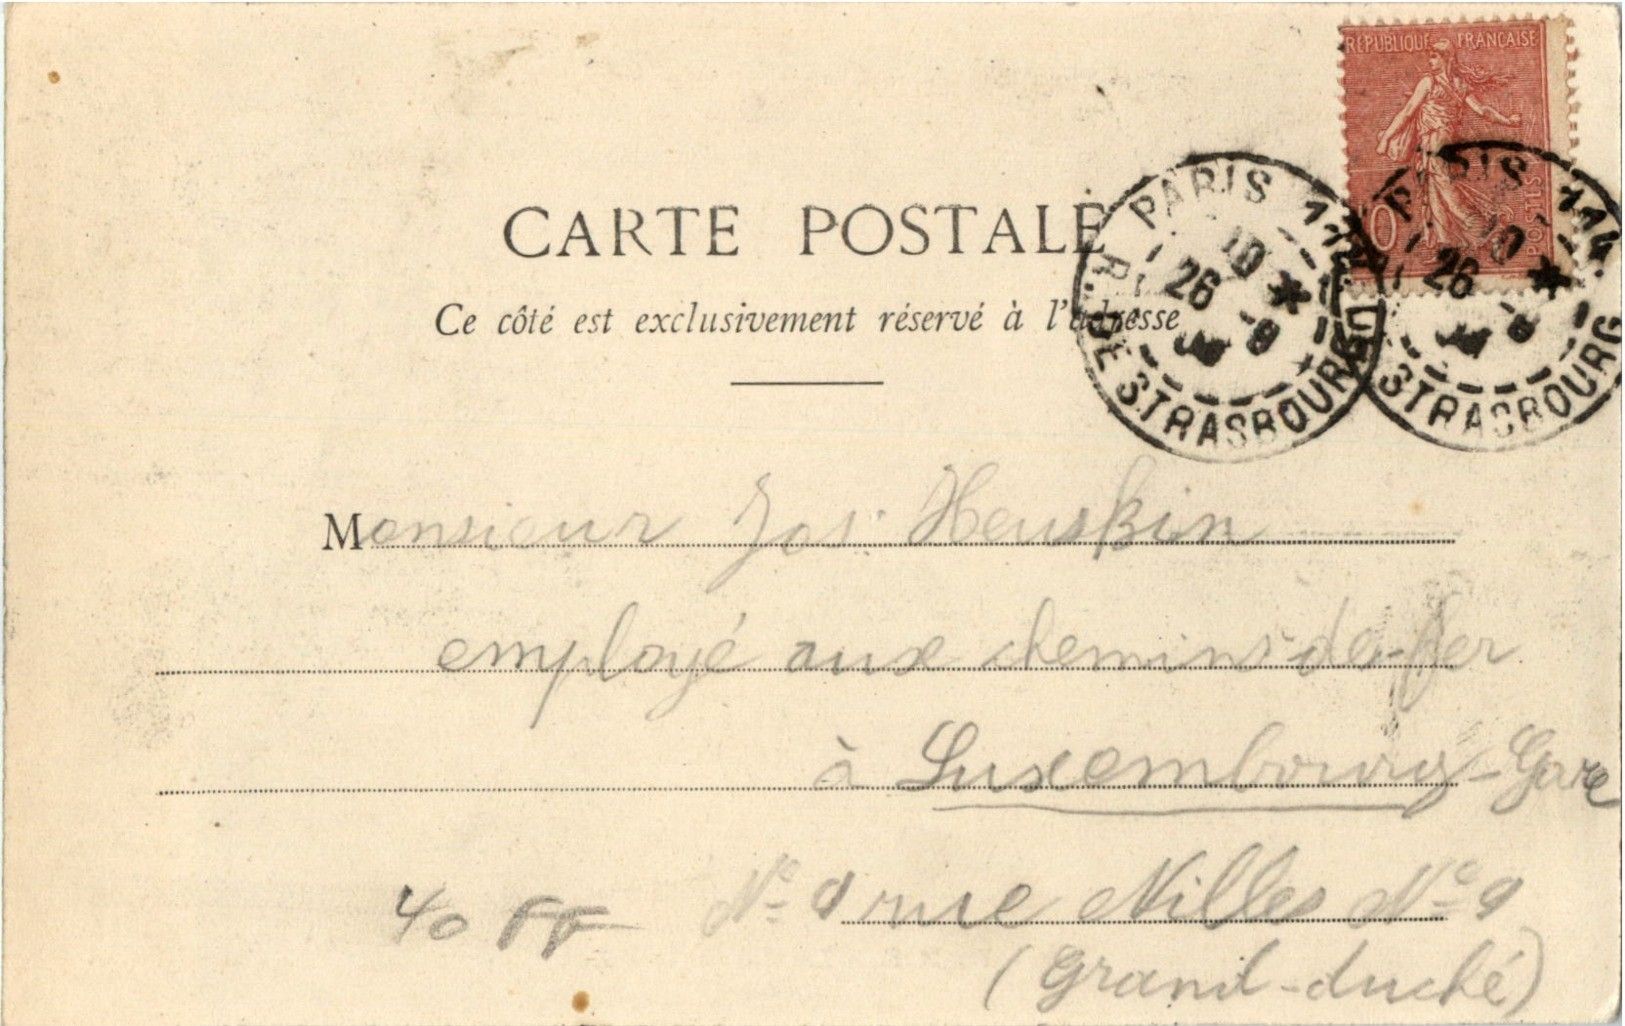 RÉPUBLIQUE FRANÇAISE
10
POSTES
PARIS 114 R. DE STRASBOURG
10 *
26 -8
PARIS 114 STRASBOURG
10 *
26 -8
CARTE POSTALE
Ce côté est exclusivement réservé à l'adresse
Monsieur Jos. Heuskin
employé aux chemins-de-fer
à Luxembourg-Gare
No 9 rue Nilles No 9
(Grand-duché)
40 FF